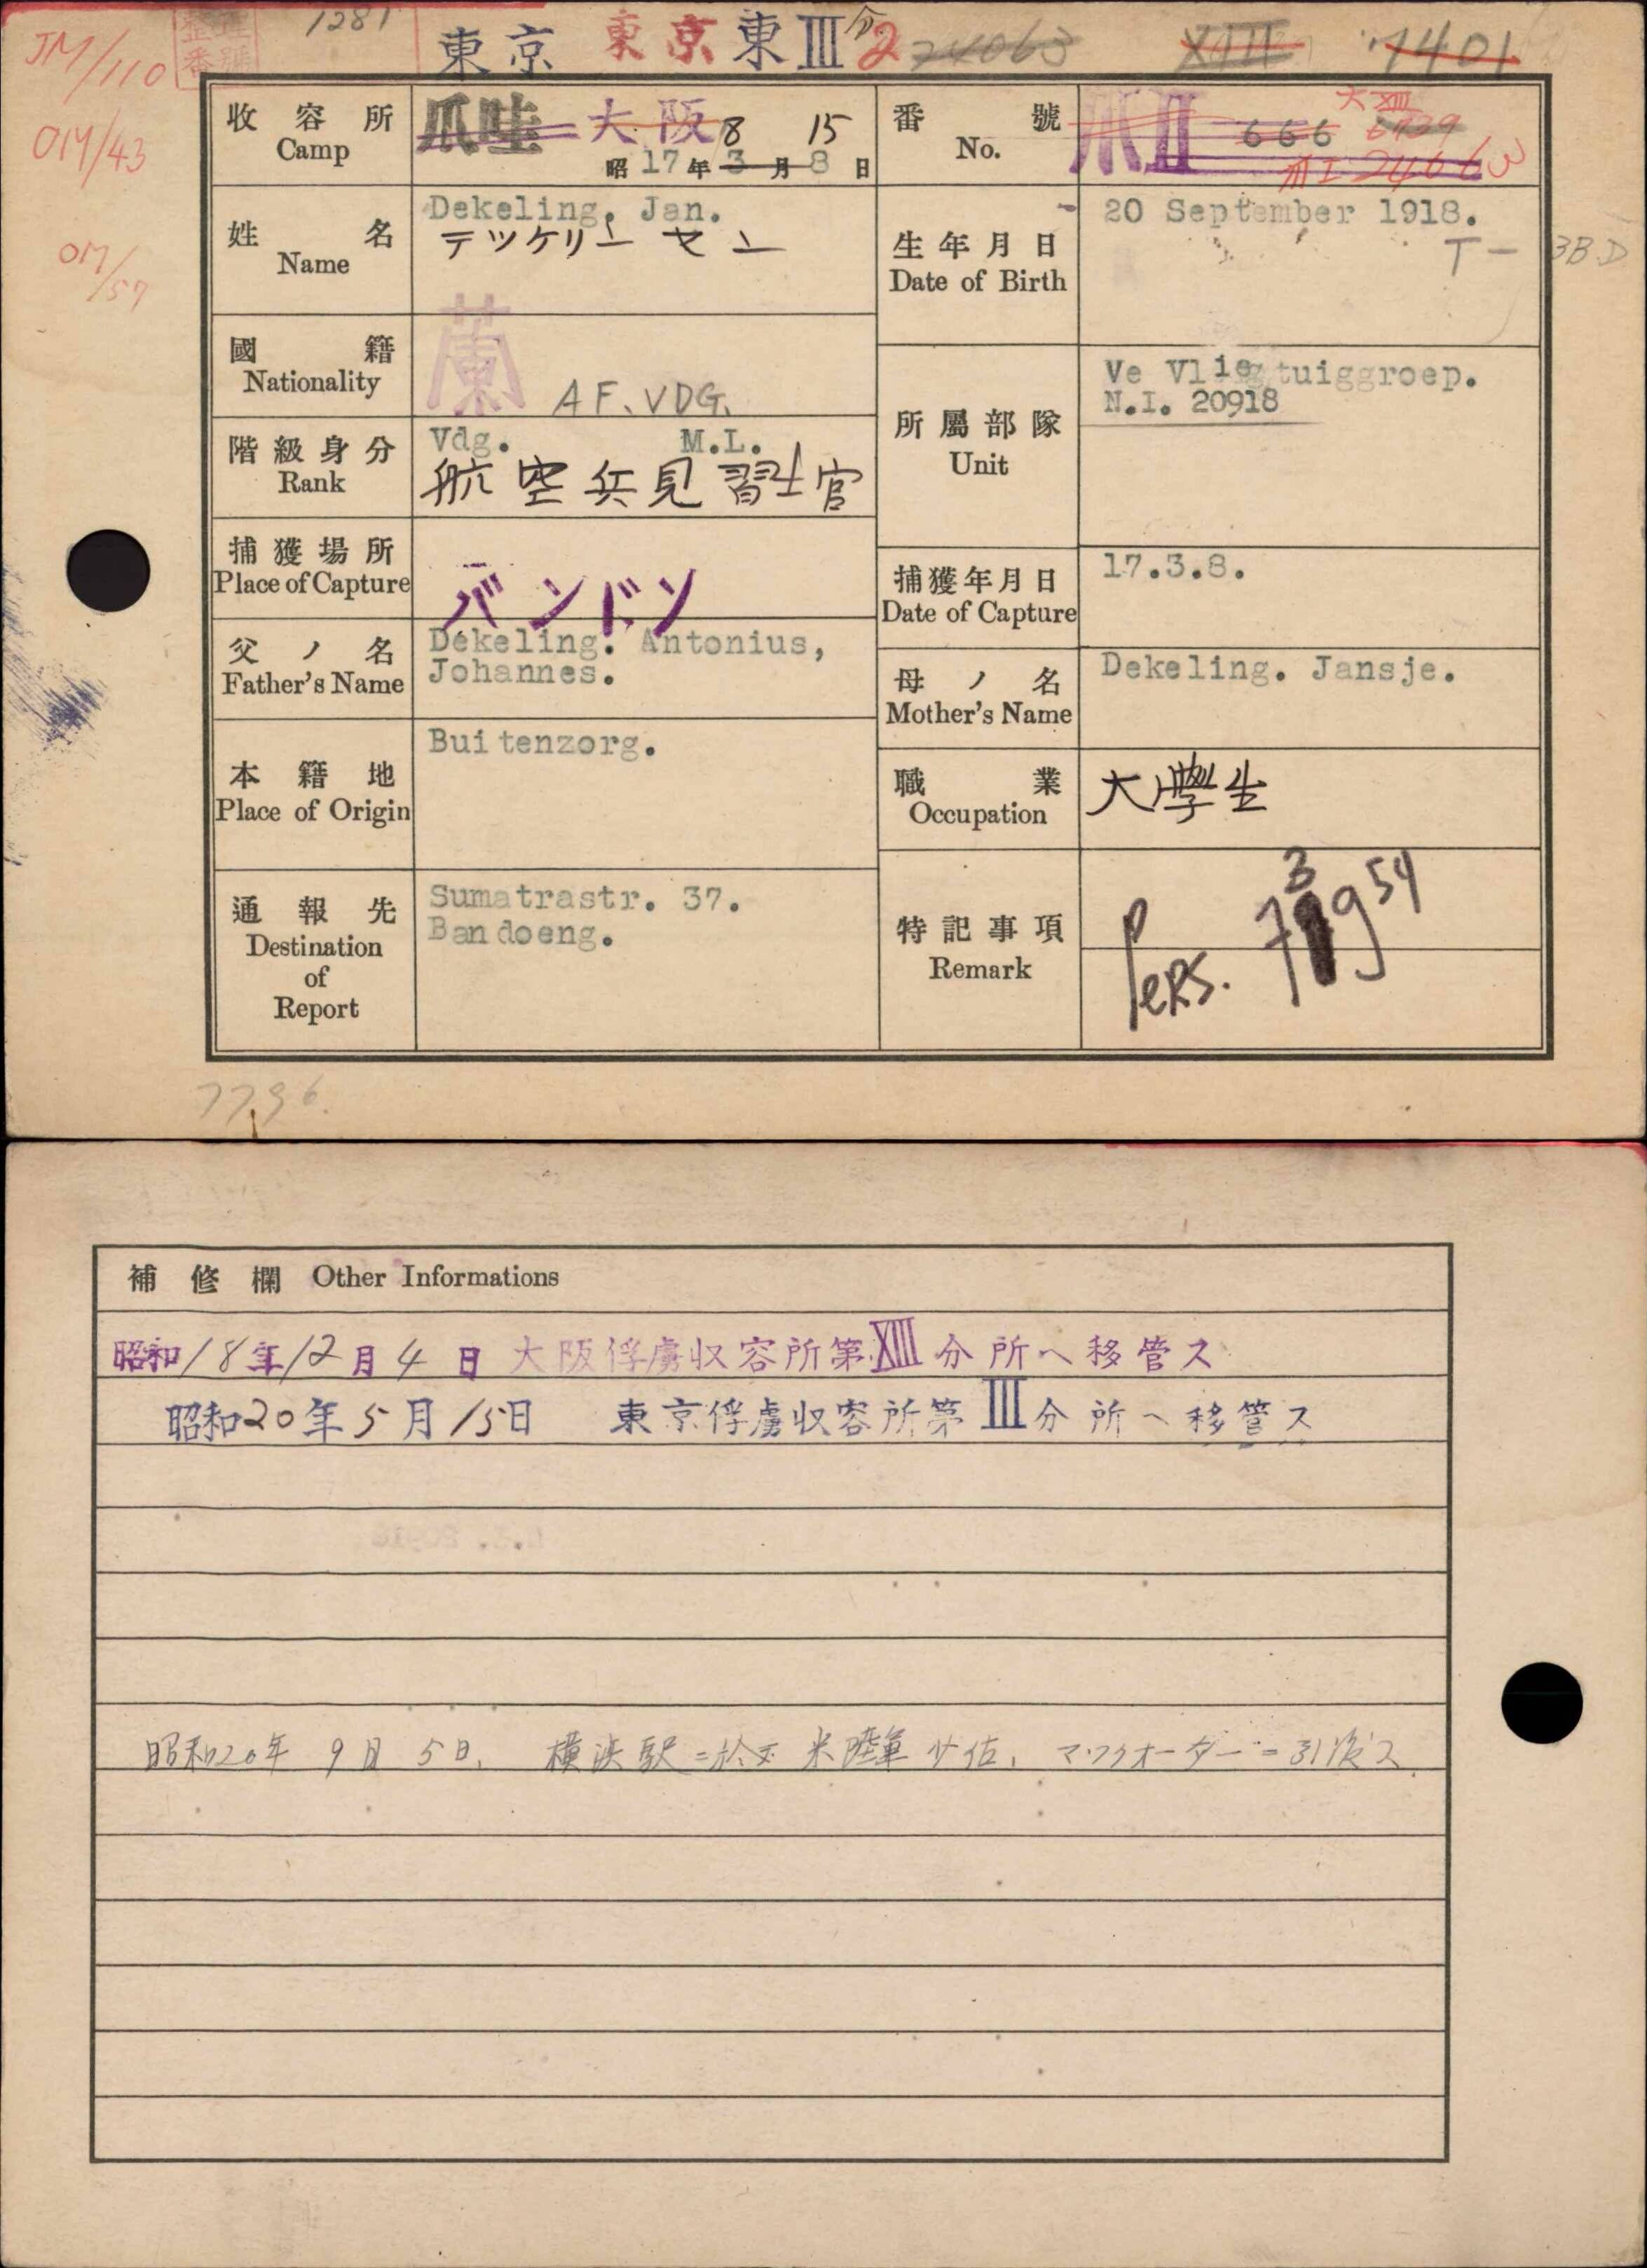 JM/110
OM/43
OM/57
1281
東京 東京 東III分2 24063 XIII 7401
收容所 Camp
爪哇 大阪 8 15
昭17年3月8日
番號 No.
爪II 666 大XIII 6739
24663
姓名 Name
Dekeling, Jan.
テツケリーン ヤン
生年月日 Date of Birth
20 September 1918.
T- 3B.D
國籍 Nationality
蘭 AF. VDG.
所屬部隊 Unit
Ve Vliegtuiggroep.
N.I. 20918
階級身分 Rank
Vdg. M.L.
航空兵見習士官
捕獲場所 Place of Capture
バンドン
捕獲年月日 Date of Capture
17.3.8.
父ノ名 Father's Name
Dekeling. Antonius,
Johannes.
母ノ名 Mother's Name
Dekeling. Jansje.
本籍地 Place of Origin
Buitenzorg.
職業 Occupation
大學生
通報先 Destination of Report
Sumatrastr. 37.
Bandoeng.
特記事項 Remark
Pers.
7796.
補修欄 Other Informations
昭和18年12月4日 大阪俘虜収容所第XIII分所へ移管ス
昭和20年5月15日 東京俘虜収容所第III分所へ移管ス
昭和20年 9月 5日. 横浜駅ニ於テ 米陸軍少佐, マツクオーダーニ引渡ス